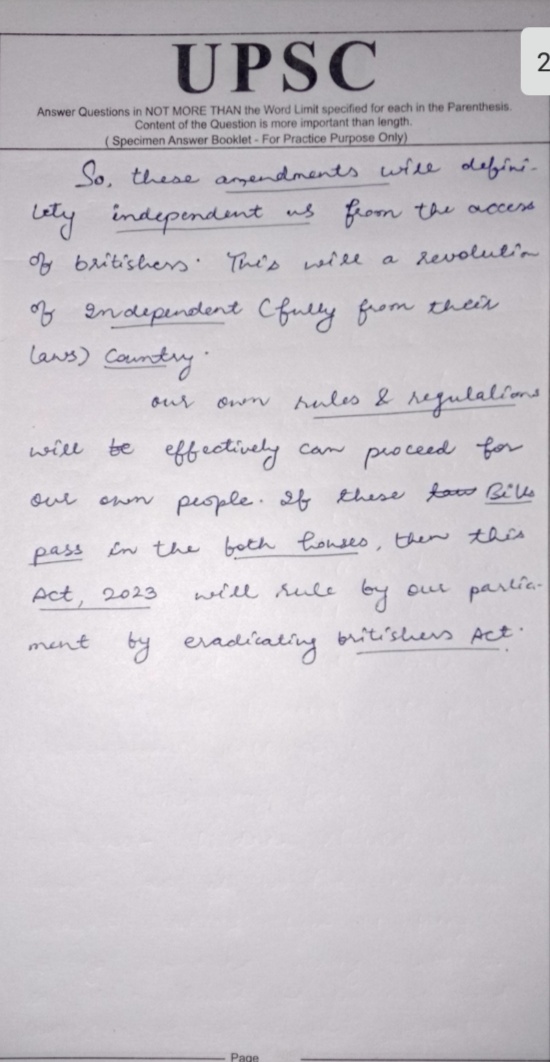 2
UPSC
Answer Questions in NOT MORE THAN the Word Limit specified for each in the Parenthesis.
Content of the Question is more important than length.
( Specimen Answer Booklet - For Practice Purpose Only)
So, these amendments will defini-
tety independent us from the access
of britishers. This will a revolution
of Independent (fully from their
laws) Country.
our own rules & regulations
will be effectively can proceed for
our own people. If these law Bills
pass in the both houses, then this
Act, 2023 will rule by our parlia-
ment by eradicating britishers Act.
Page